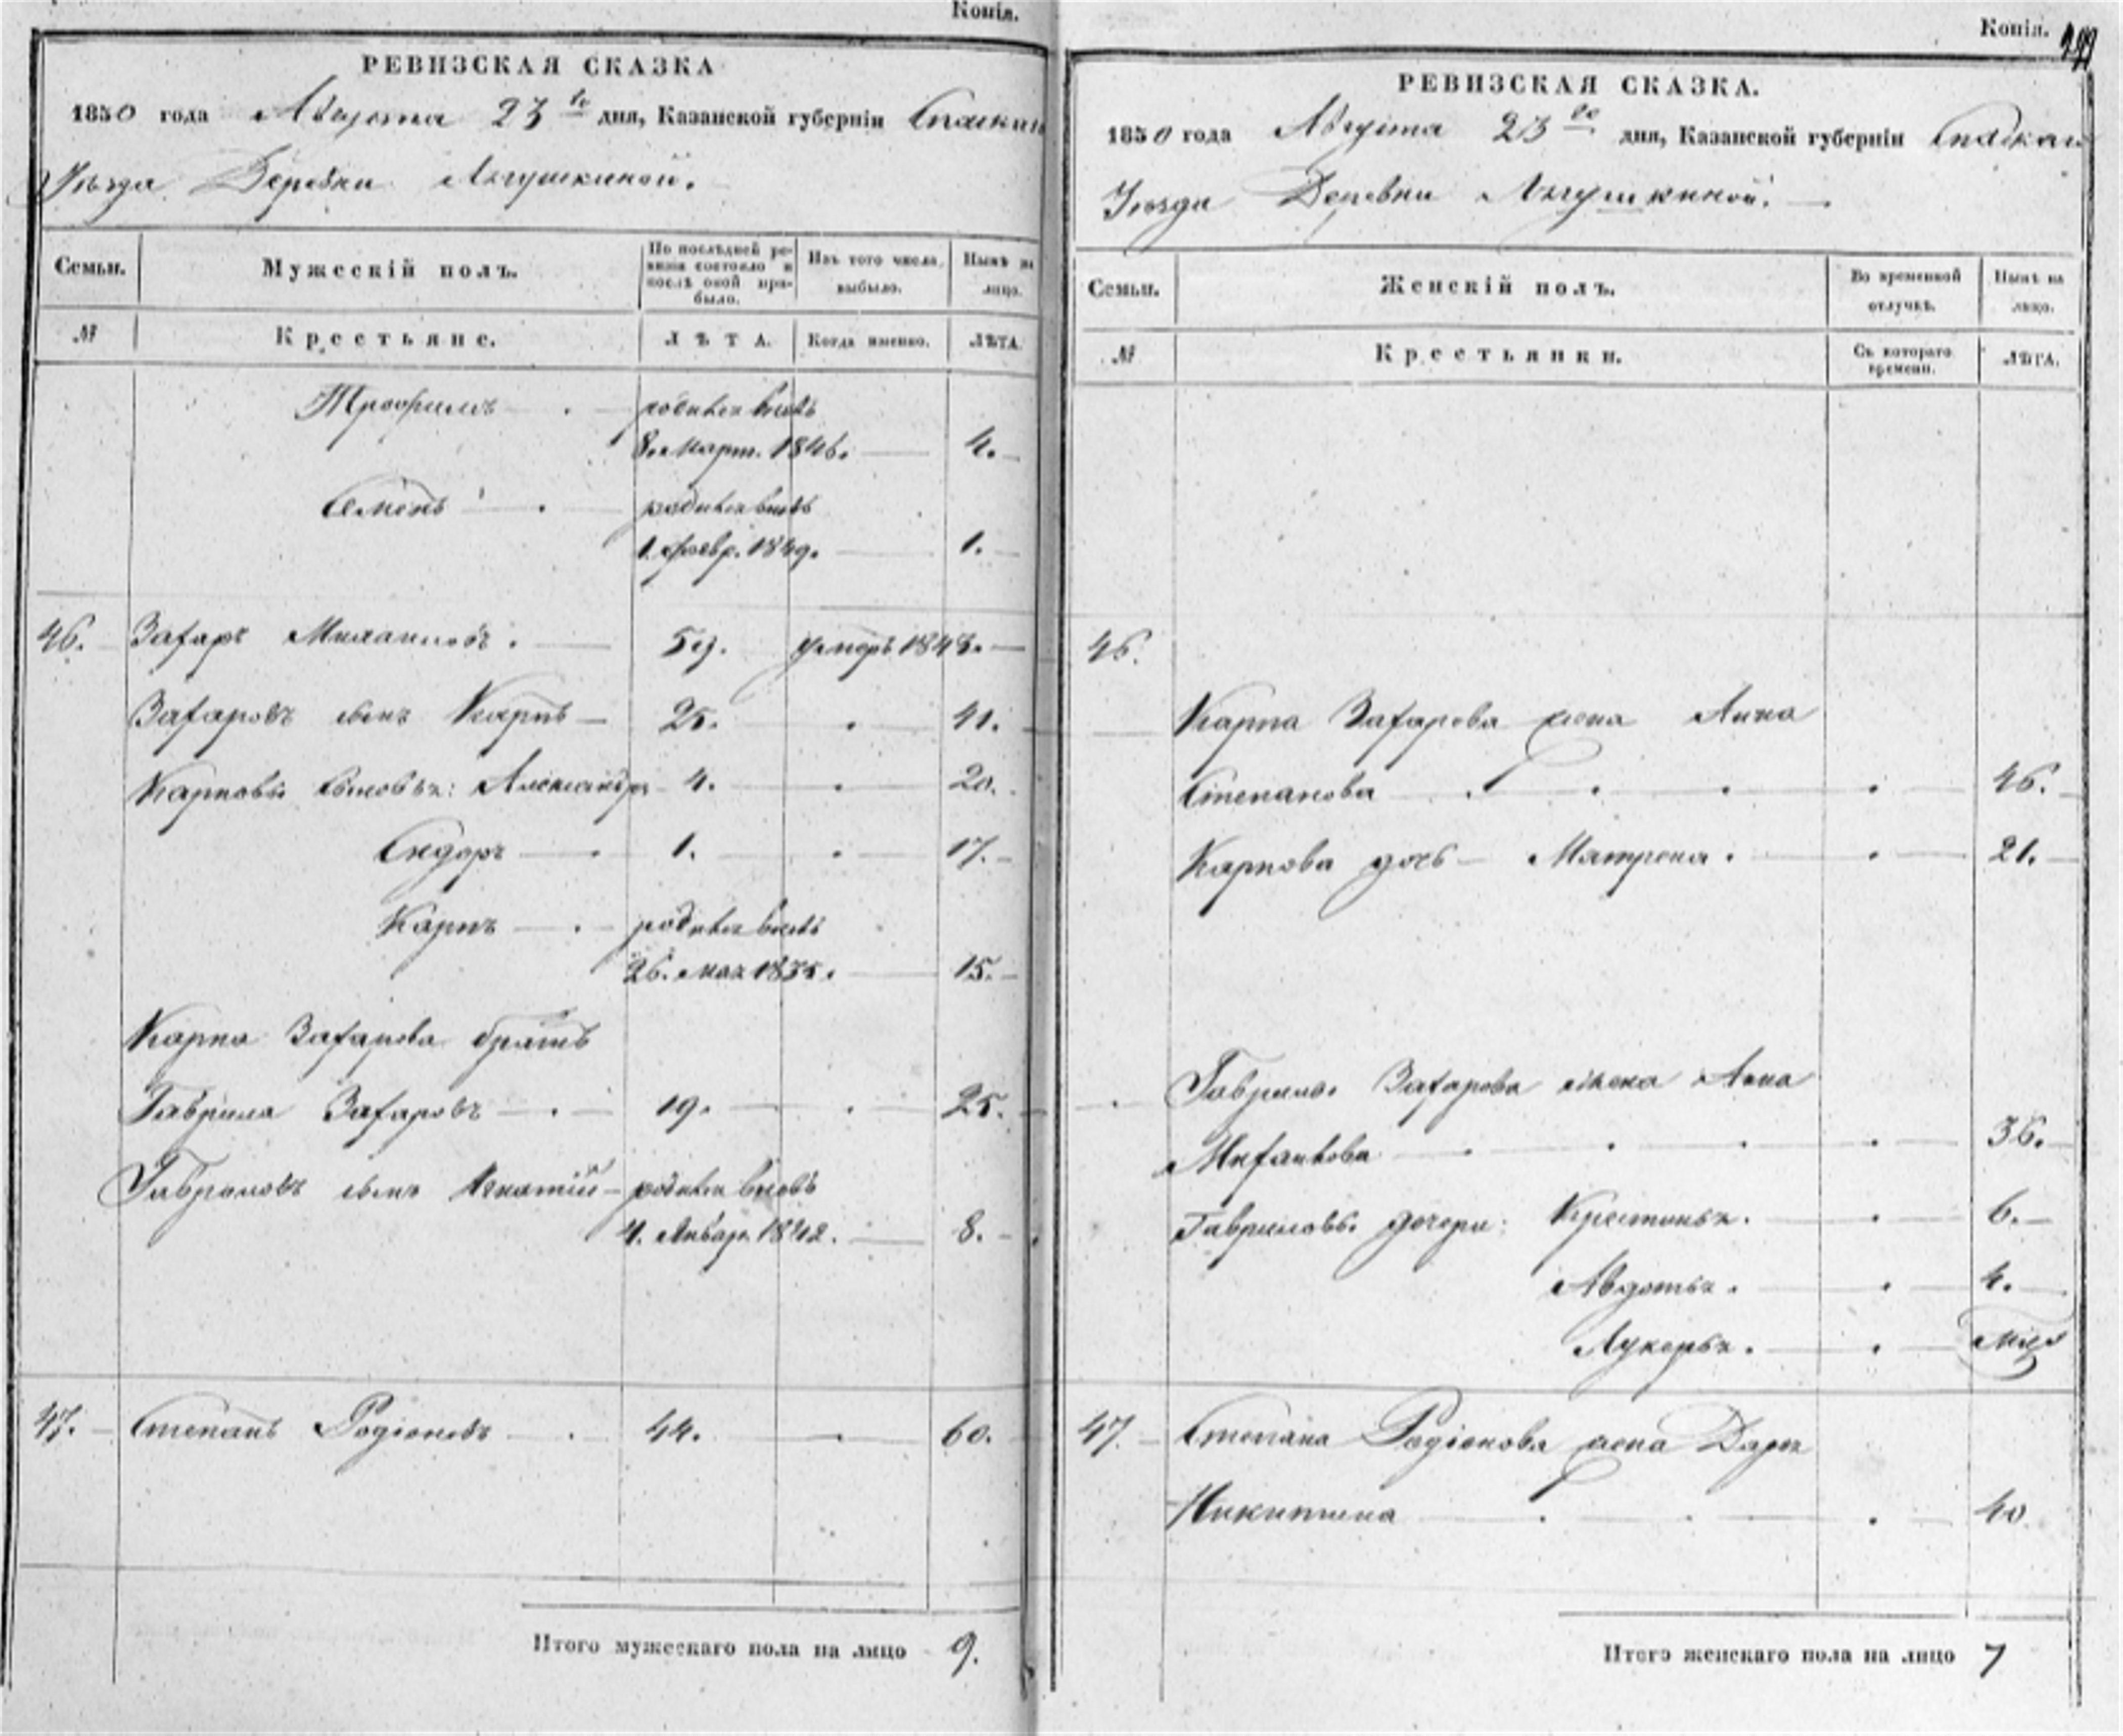 Копія.
РЕВИЗСКАЯ СКАЗКА
1850 года Августа 23го дня, Казанской губерніи Спаскаго
Уѣзда Деревни Лягушкиной.
Семьи. Мужескій полъ. По послѣдней ревизіи состояло и послѣ оной прибыло. Изъ того числа выбыло. Нынѣ на лицо.
№ Крестьяне. ЛѢТА. Когда именно. ЛѢТА.
Трофимъ родился вновь
8. Март. 1846. 4.
Семенъ родился вновь
1. Февр. 1849. 1.
46. Захаръ 59. умеръ
Захаровъ сынъ Карпъ 25. 41.
Карповы сыновья: Александръ 4. 20.
Сидоръ 1. 17.
Карпъ родился вновь
26. мая 1835. 15.
Карпа Захарова братъ
Гаврила Захаровъ 19. 25.
Гавриловъ сынъ Игнатій родился вновь
4. Январ. 1842. 8.
47. Степанъ Родіоновъ 44. 60.
Итого мужескаго пола на лицо 9.
Копія.
РЕВИЗСКАЯ СКАЗКА.
1850 года Августа 23го дня, Казанской губерніи Спаскаго
Уѣзда Деревни Лягушкиной.
Семьи. Женскій полъ. Во временной отлучкѣ. Нынѣ на лицо.
№ Крестьянки. Съ котораго времени. ЛѢТА.
46.
Карпа Захарова жена Анна
Степанова 46.
Карпова дочь Матрена. 21.
Гаврилы Захарова жена Анна
36.
Гавриловы дочери: 6.
Авдотья. 4.
Лукерья.
47. Степана Родіонова жена Дарья
Никитина 40
Итого женскаго пола на лицо 7